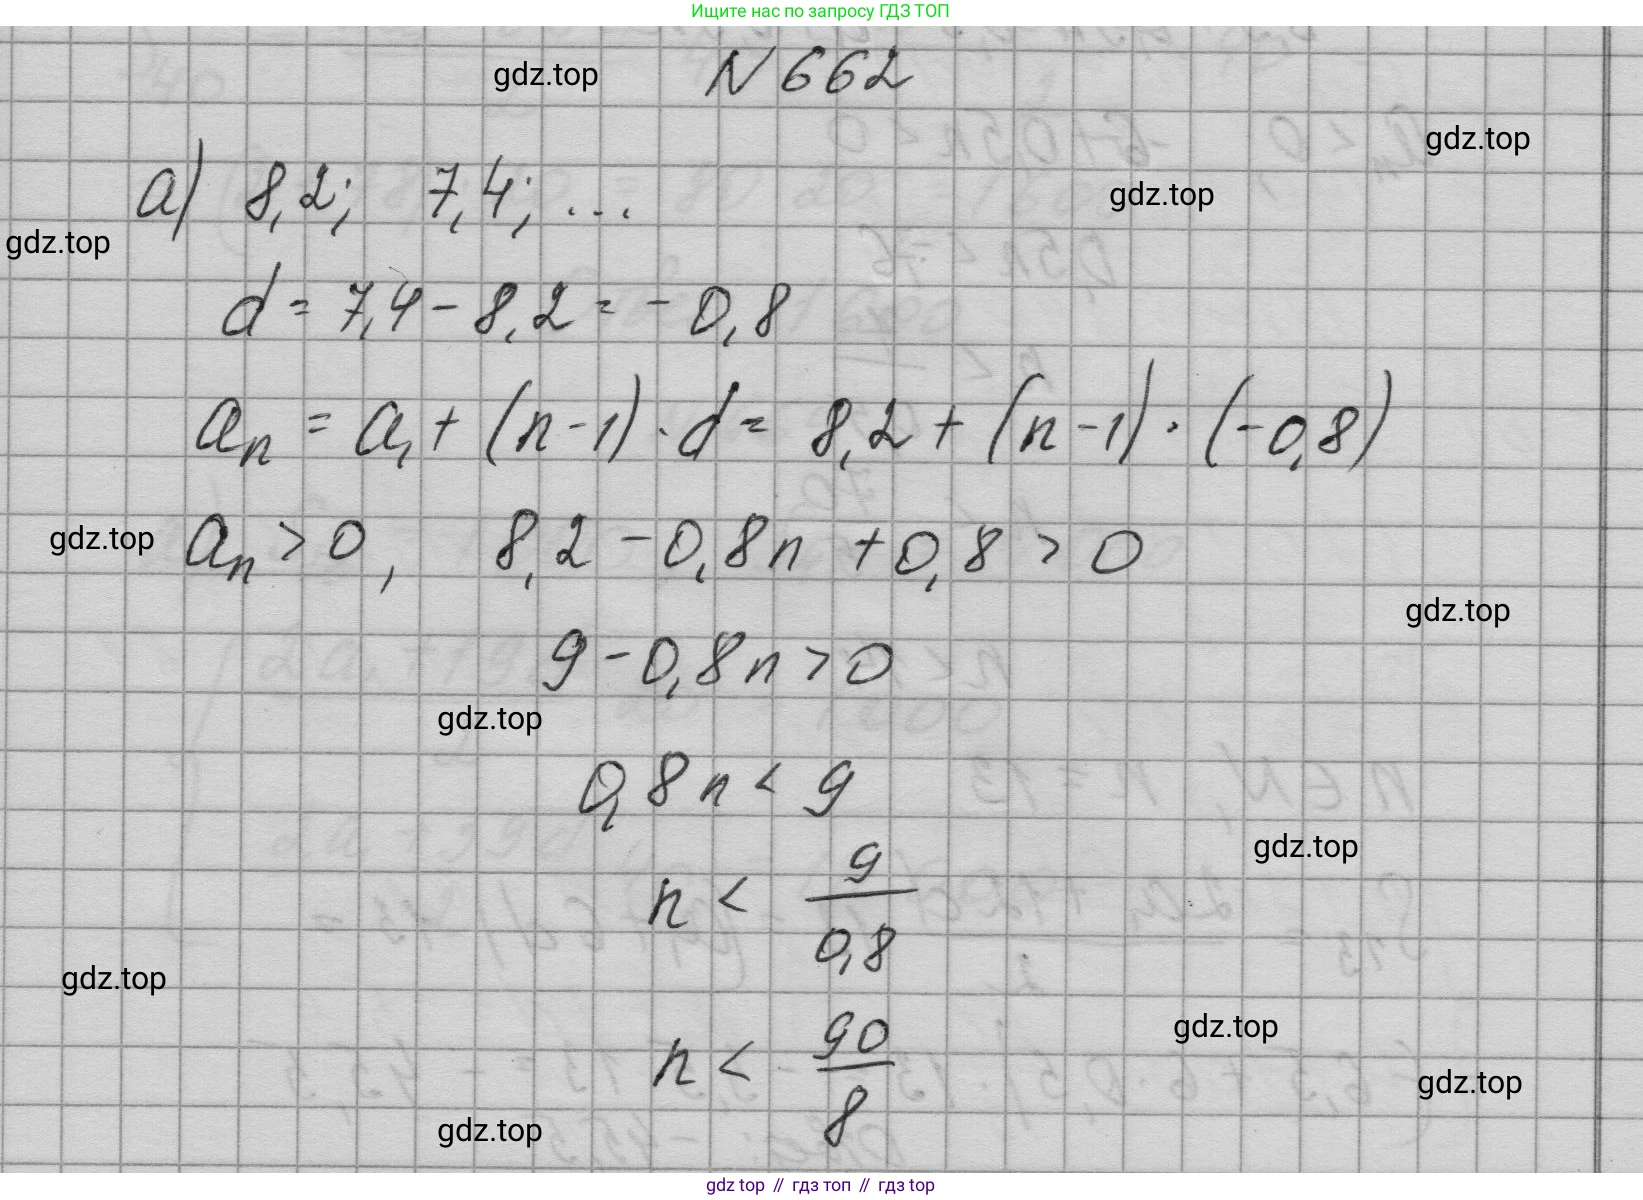 Ищите нас по запросу ГДЗ ТОП
gdz.top N 662
gdz.top
а) 8,2; 7,4; ... gdz.top
gdz.top
d = 7,4 - 8,2 = - 0,8
aₙ = a₁ + (n-1) · d = 8,2 + (n-1) · (-0,8)
gdz.top aₙ > 0, 8,2 - 0,8n + 0,8 > 0
gdz.top
9 - 0,8n > 0
gdz.top
0,8n < 9
gdz.top
n < 9/0,8
gdz.top
gdz.top
n < 90/8
gdz.top
gdz.top
gdz top // гдз топ // гдз top